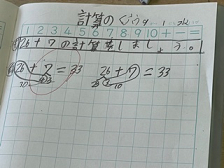 計算のくふう
1 2 3 4 5 6 7 8 9 10 + − =
26+7の計算をしましょう。
26+7=33 26+7=33